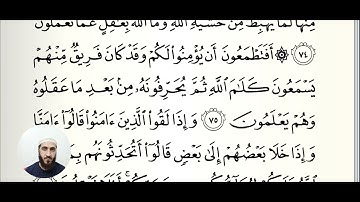 مِنْهَا لَمَا يَهْبِطُ مِنْ خَشْيَةِ اللَّهِ وَمَا اللَّهُ بِغَافِلٍ عَمَّا تَعْمَلُونَ
٧٤ ۞ أَفَتَطْمَعُونَ أَن يُؤْمِنُوا لَكُمْ وَقَدْ كَانَ فَرِيقٌ مِّنْهُمْ
يَسْمَعُونَ كَلَامَ اللَّهِ ثُمَّ يُحَرِّفُونَهُ مِنۢ بَعْدِ مَا عَقَلُوهُ
وَهُمْ يَعْلَمُونَ ٧٥ وَإِذَا لَقُوا الَّذِينَ ءَامَنُوا قَالُوا ءَامَنَّا
وَإِذَا خَلَا بَعْضُهُمْ إِلَىٰ بَعْضٍ قَالُوا أَتُحَدِّثُونَهُم بِمَا